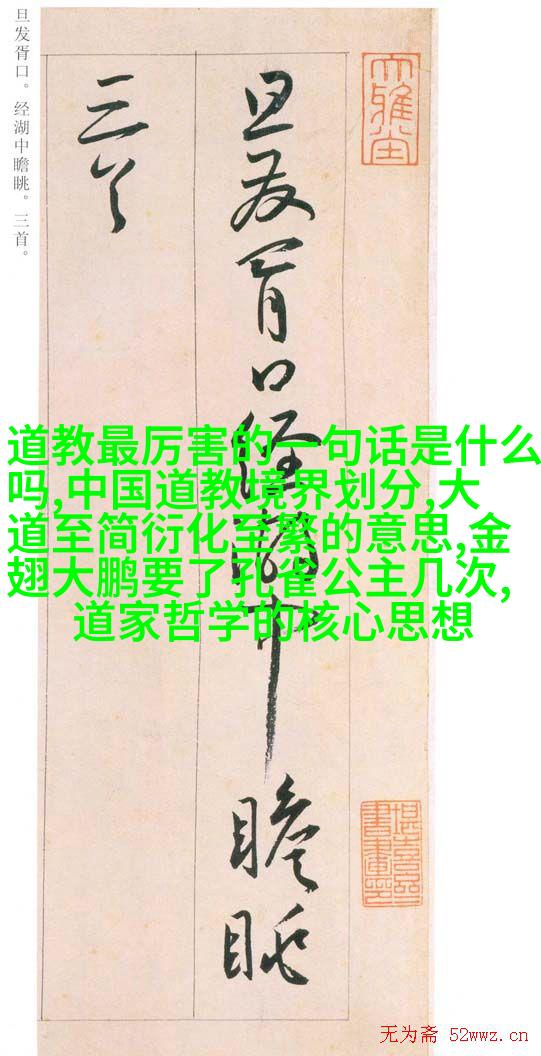 旦发胥口。经湖中瞻眺。三首。
旦发胥口经湖中瞻眺
三首
大雅堂
道教最厉害的一句话是什么
吗,中国道教境界划分,大
道至简衍化至繁的意思,金
翅大鹏要了孔雀公主几次,
道家哲学的核心思想
无为斋 52wwz.cn